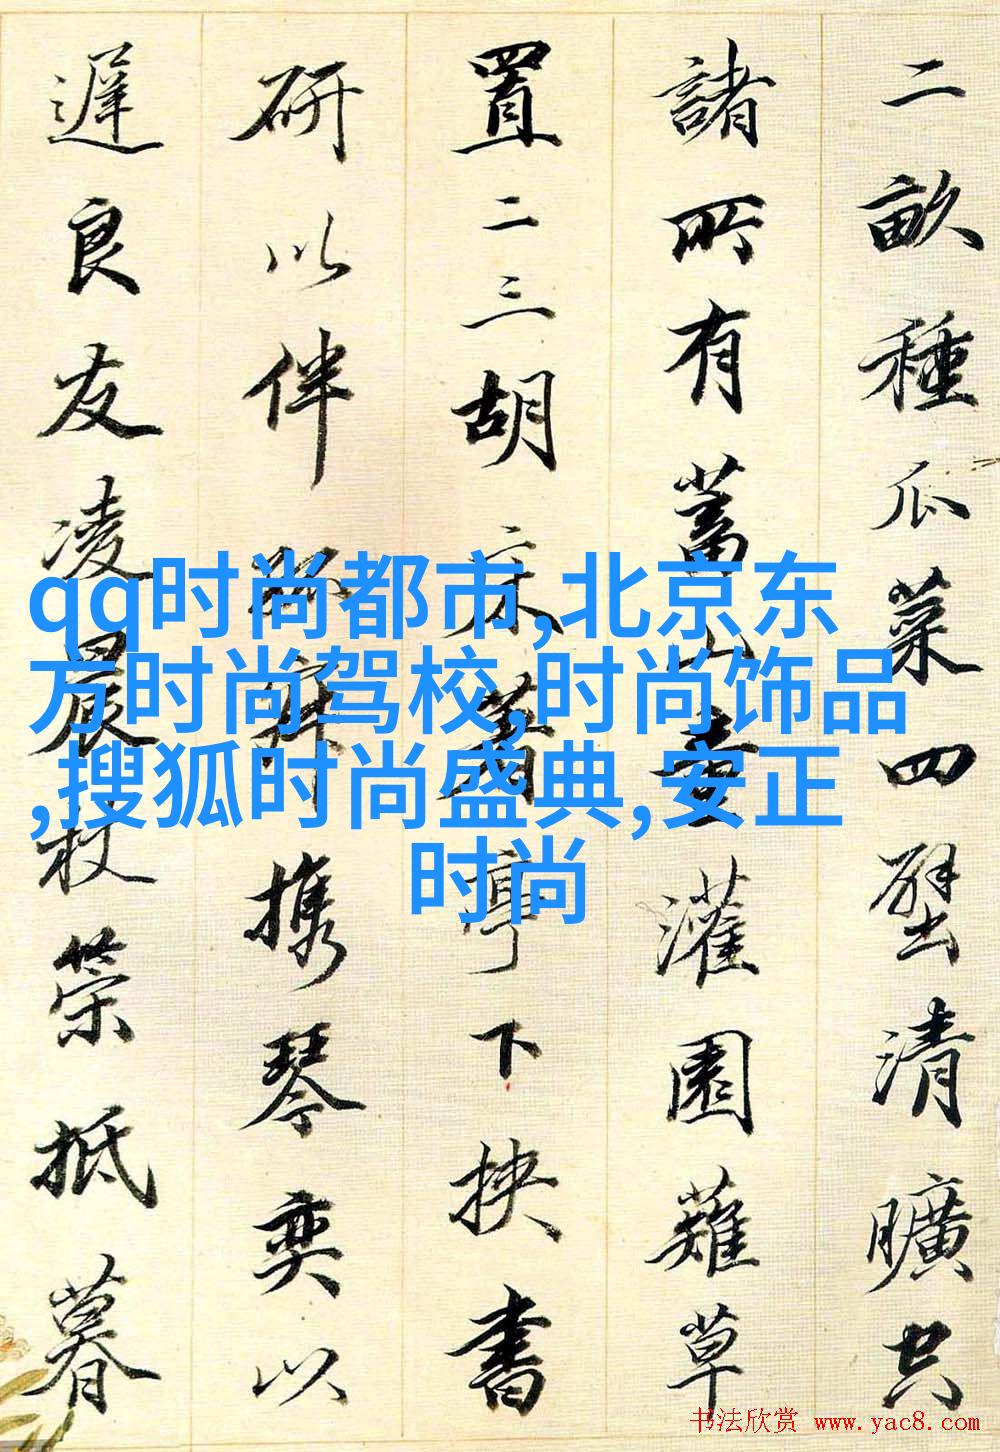 二畝種瓜菜四壁清曠空
諸所有蓄山童灌園薙草
置二三胡床著亭下挾書
研以伴孤寂携琴奕以
遲良友凌晨杖策抵暮
qq时尚都市,北京东
方时尚驾校,时尚饰品
,搜狐时尚盛典,安正
时尚
书法欣赏 www.yac8.com